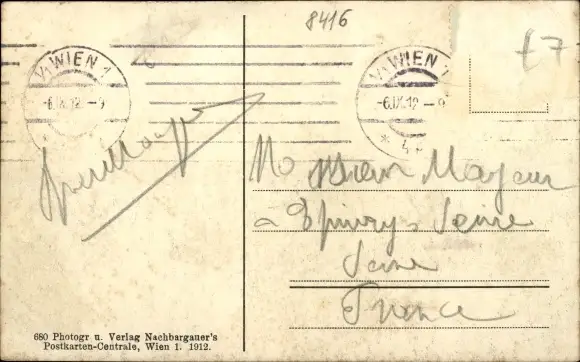 8416
£7
1/1 WIEN 1
-6.IX.12-9
1/1 WIEN 1
-6.IX.12-9
* 4
Monsieur Majeur
a Epinay s Seine
Seine
France
680 Photogr u. Verlag Nachbargauer's
Postkarten-Centrale, Wien 1. 1912.